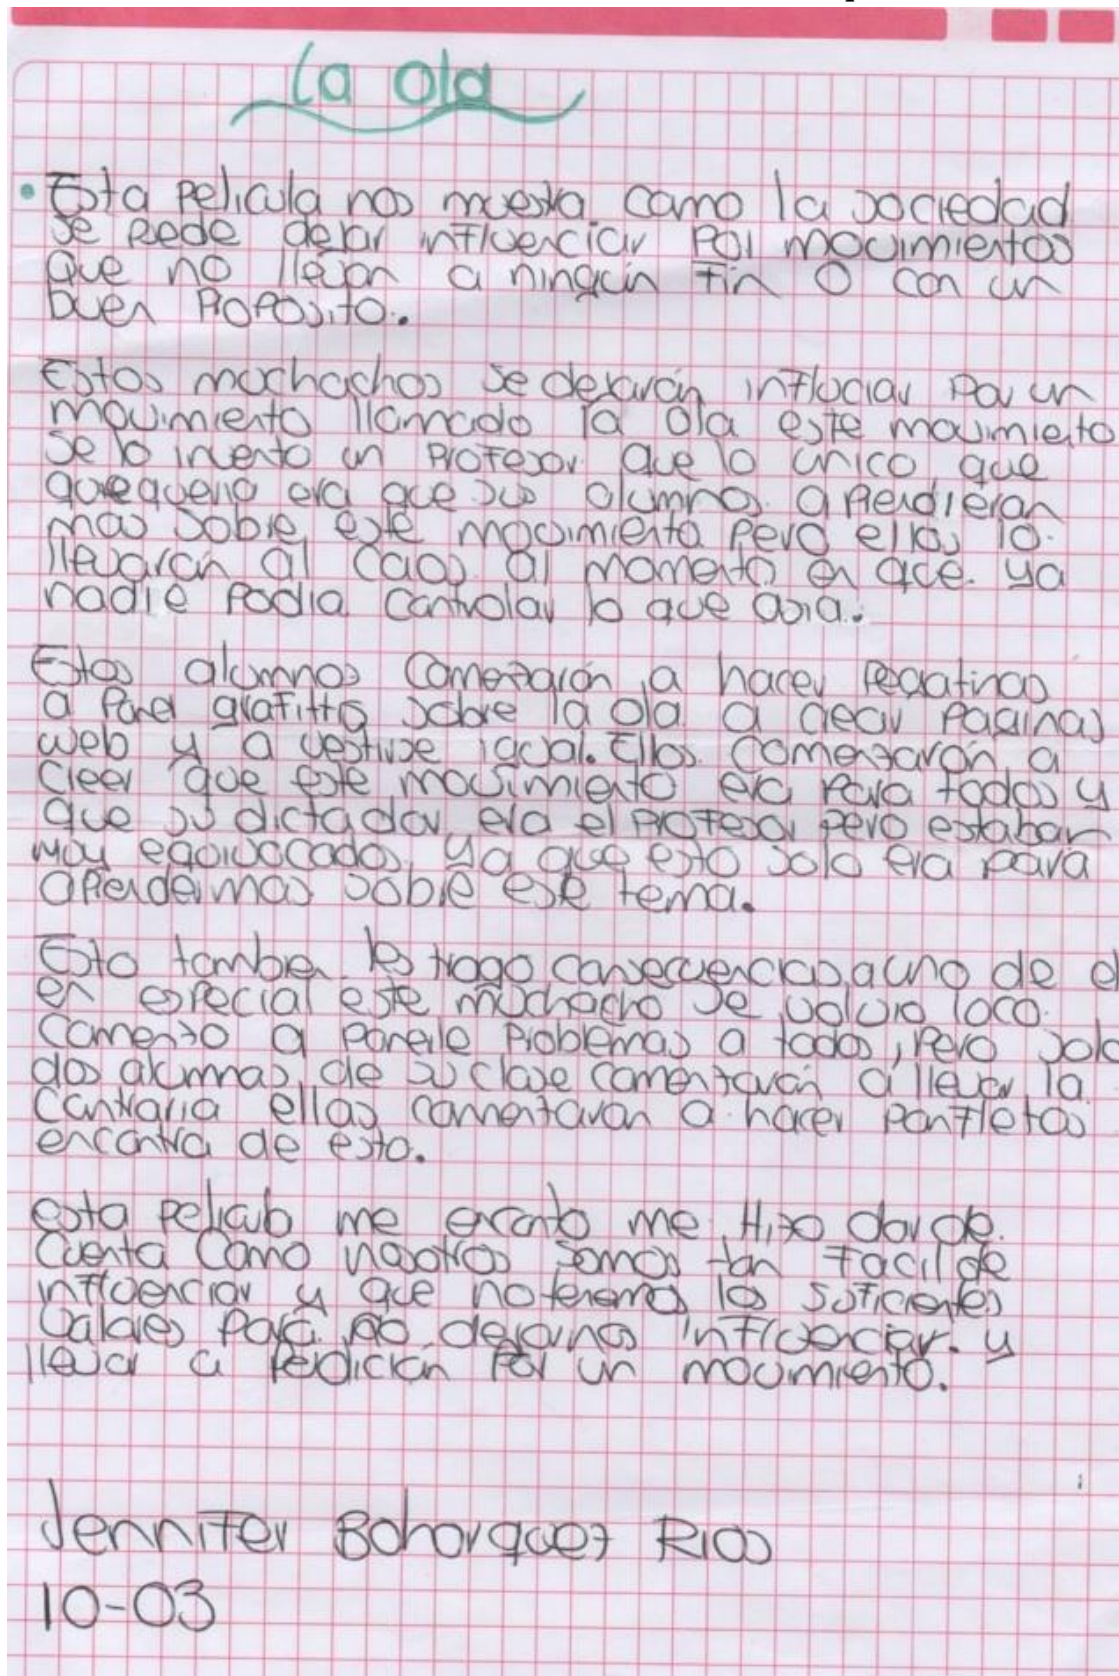 La Ola
• Esta pelicula nos muestra como la sociedad
se puede dejar influenciar por movimientos
que no llevan a ningún fin o con un
buen proposito.
Estos muchachos se dejarón influciar por un
movimiento llamado la ola este movimieto
se lo invento un profesor que lo unico que
queria era que sus alumnos aprendieran
mas sobre este movimiento pero ellos lo
llevarón al caos al momento en que ya
nadie podia controlar lo que asia.
Estos alumnos comenzarón a hacer pegatinas
a poner grafittis sobre la ola a crear paginas
web y a vestirse igual. Ellos comenzarón a
creer que este movimiento era para todos y
que su dictador era el profesor pero estaban
muy equivocados ya que esto solo era para
aprender mas sobre este tema.
Esto tambien les trago consecuencias a uno de el
en especial este muchacho se volvio loco
comenzo a ponerle problemas a todos, pero solo
dos alumnas de su clase comenzarón a llevar la
contraria ellas comenzaron a hacer panfletos
encontra de esto.
esta pelicula me encanto me Hizo dar de
cuenta como nosotros somos tan facil de
influenciar y que no tenemos los suficientes
valores para no dejarnos influenciar y
llevar a perdición por un movimiento.
Jennifer Bohorquez Rios
10-03